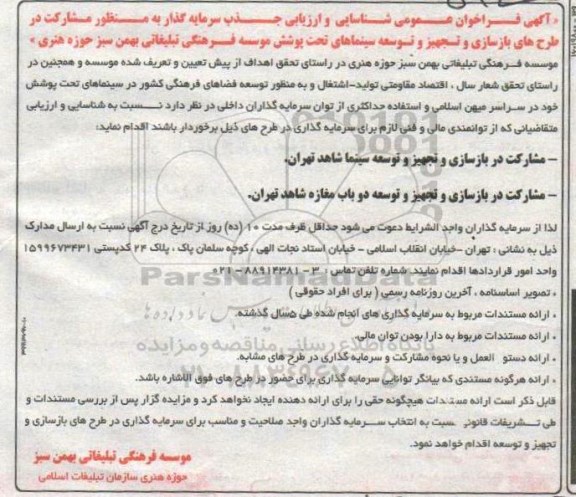 « آگهی فراخوان عمومی شناسایی و ارزیابی جذب سرمایه گذار به منظور مشارکت در
طرح های بازسازی و تجهیز و توسعه سینماهای تحت پوشش موسسه فرهنگی تبلیغاتی بهمن سبز حوزه هنری »
موسسه فرهنگی تبلیغاتی بهمن سبز حوزه هنری در راستای تحقق اهداف از پیش تعیین و تعریف شده موسسه و همچنین در
راستای تحقق شعار سال ، اقتصاد مقاومتی تولید-اشتغال و به منظور توسعه فضاهای فرهنگی کشور در سینماهای تحت پوشش
خود در سراسر میهن اسلامی و استفاده حداکثری از توان سرمایه گذاران داخلی در نظر دارد نسبت به شناسایی و ارزیابی
متقاضیانی که از توانمندی مالی و فنی لازم برای سرمایه گذاری در طرح های ذیل برخوردار باشند اقدام نماید:
– مشارکت در بازسازی و تجهیز و توسعه سینما شاهد تهران.
– مشارکت در بازسازی و تجهیز و توسعه دو باب مغازه شاهد تهران.
لذا از سرمایه گذاران واجد الشرایط دعوت می شود حداقل ظرف مدت ۱۰ (ده) روز از تاریخ درج آگهی نسبت به ارسال مدارک
ذیل به نشانی : تهران -خیابان انقلاب اسلامی - خیابان استاد نجات الهی ، کوچه سلمان پاک ، پلاک ۲۴ کدپستی ۱۵۹۹۶۷۳۴۳۱
واحد امور قراردادها اقدام نمایند. شماره تلفن تماس : ۳ - ۸۸۹۱۴۳۸۱ - ۰۲۱
ParsNamadData
• تصویر اساسنامه ، آخرین روزنامه رسمی ( برای افراد حقوقی )
• ارائه مستندات مربوط به سرمایه گذاری های انجام شده طی ۵سال گذشته.
• ارائه مستندات مربوط به دارا بودن توان مالی.
پایگاه اطلاع رسانی مناقصه و مزایده
• ارائه دستو العمل و یا نحوه مشارکت و سرمایه گذاری در طرح های مشابه.
۰۲۱-۸۸۳۴۹۶۷۰-۵
• ارائه هرگونه مستندی که بیانگر توانایی سرمایه گذاری برای حضور در طرح های فوق الاشاره باشد.
قابل ذکر است ارائه مستندات هیچگونه حقی را برای ارائه دهنده ایجاد نخواهد کرد و مزایده گزار پس از بررسی مستندات و
طی تشریفات قانونی نسبت به انتخاب سرمایه گذاران واجد صلاحیت و مناسب برای سرمایه گذاری در طرح های بازسازی و
تجهیز و توسعه اقدام خواهد نمود.
موسسه فرهنگی تبلیغاتی بهمن سبز
حوزه هنری سازمان تبلیغات اسلامی